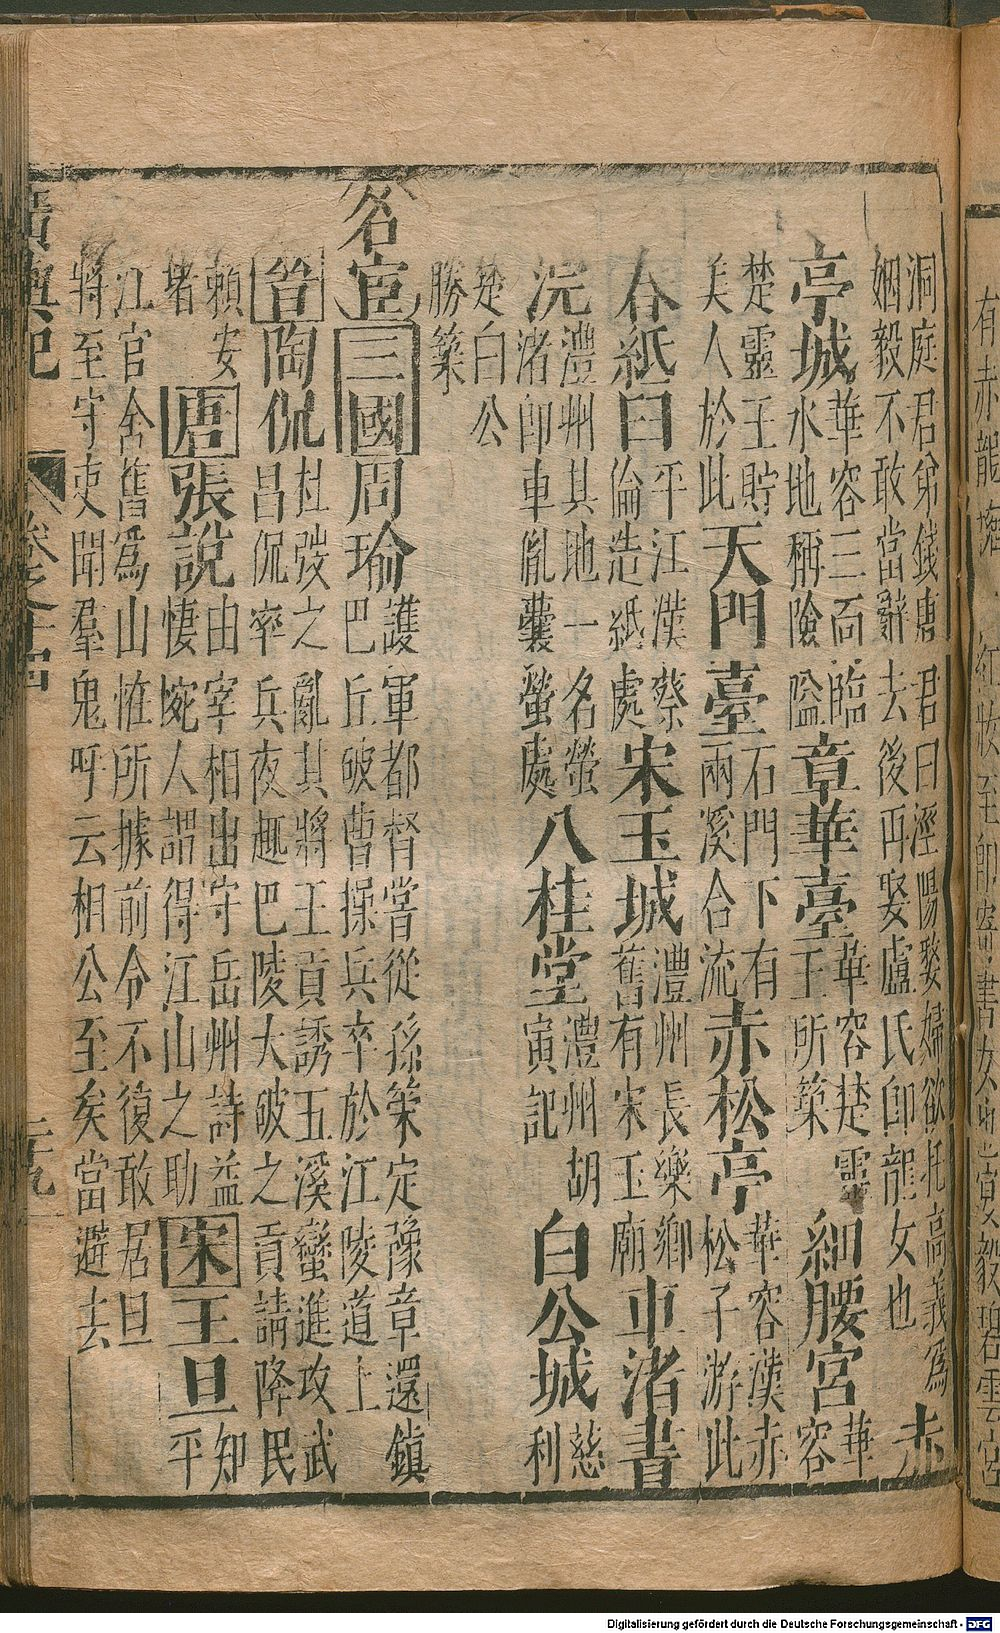 洞庭君弟錢唐君曰涇陽嫠婦欲托高義爲
姻毅不敢當辭去後再娶盧氏即龍女也
赤
亭城
華容三面臨
水地稱險隘
章華臺
華容楚靈
王所築
細腰宮
華
容
楚靈王貯
美人於此
天門臺
石門下有
兩溪合流
赤松亭
華容漢赤
松子游此
舂紙臼
平江漢蔡
倫造紙處
宋玉城
澧州長樂鄉
舊有宋玉廟
車渚書
澧州其地一名螢
渚即車胤囊螢處
八桂堂
澧州胡
寅記
白公城
慈
利
楚白公
勝築
名宦
三國
周瑜
護軍都督嘗從孫策定豫章還鎮
巴丘破曹操兵卒於江陵道上
晉
陶侃
杜弢之亂其將王貢誘五溪蠻進攻武
昌侃率兵夜趣巴陵大破之貢請降民
賴安
堵
唐
張說
由宰相出守岳州詩益
悽惋人謂得江山之助
宋
王旦
知
平
江官舍舊爲山怪所據前令不復敢居旦
將至守吏聞羣鬼呼云相公至矣當避去
廣輿記
卷之十四
Digitalisierung gefördert durch die Deutsche Forschungsgemeinschaft - DFG